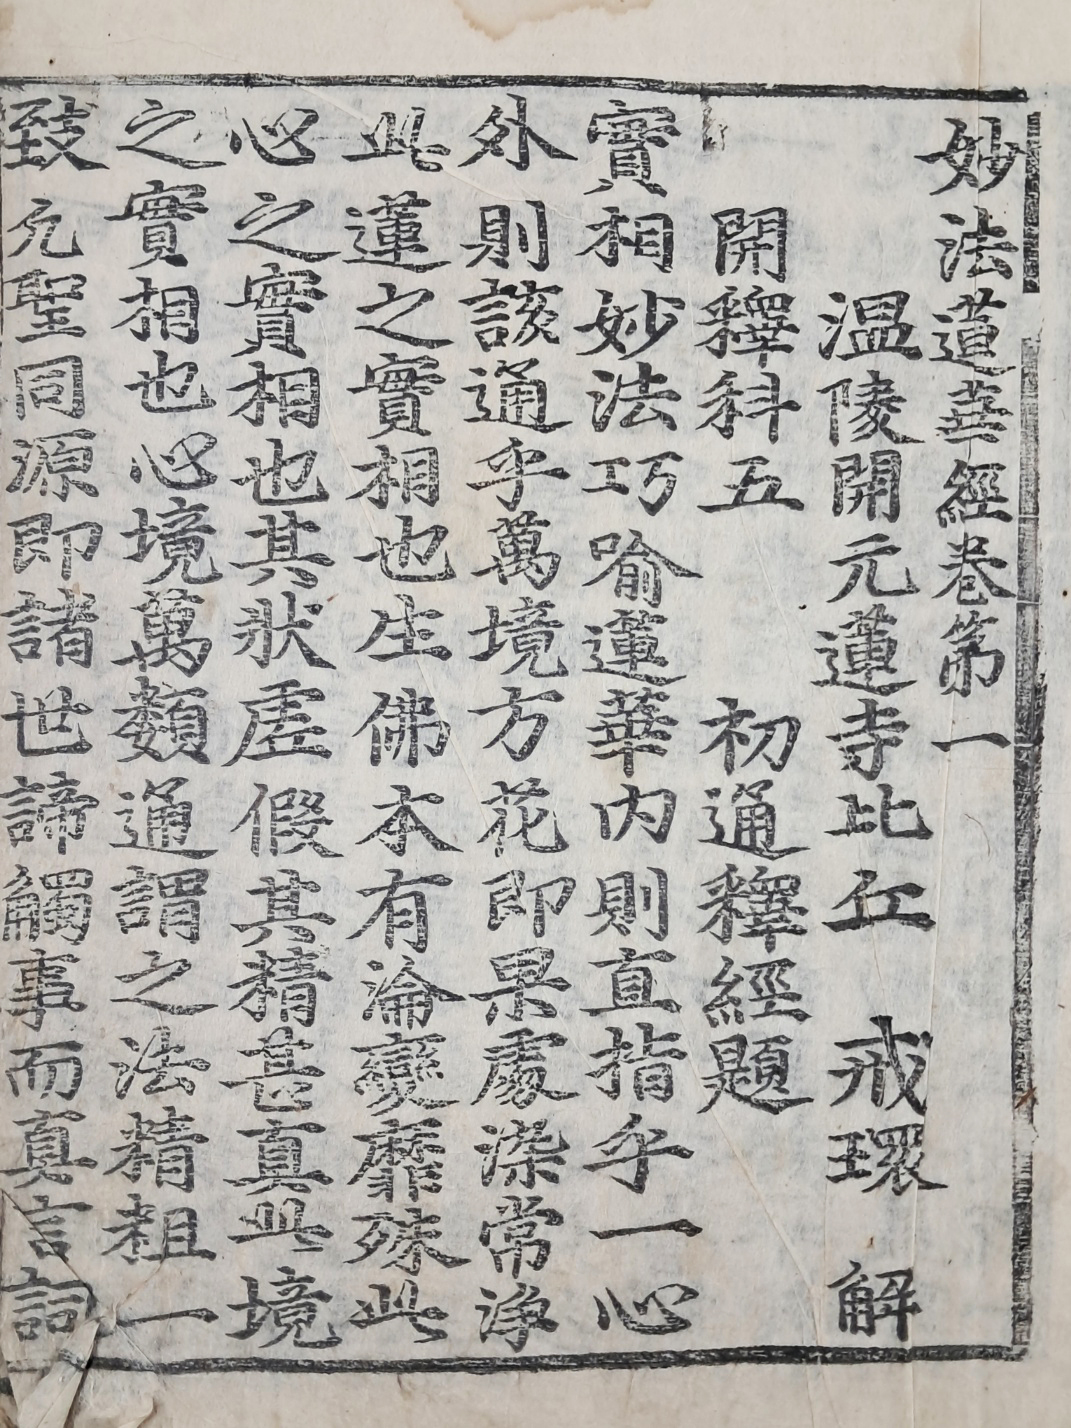 妙法蓮華經卷第一
温陵開元蓮寺比丘 戒環 解
開釋科五 初通釋經題
實相妙法巧喻蓮華內則直指乎一心
外則該通乎萬境方花即果處染常淨
此蓮之實相也生佛本有淪變靡殊此
心之實相也其狀虛假其精甚真此境
之實相也心境萬類通謂之法精粗一
致凡聖同源即諸世諦觸事而真言詞